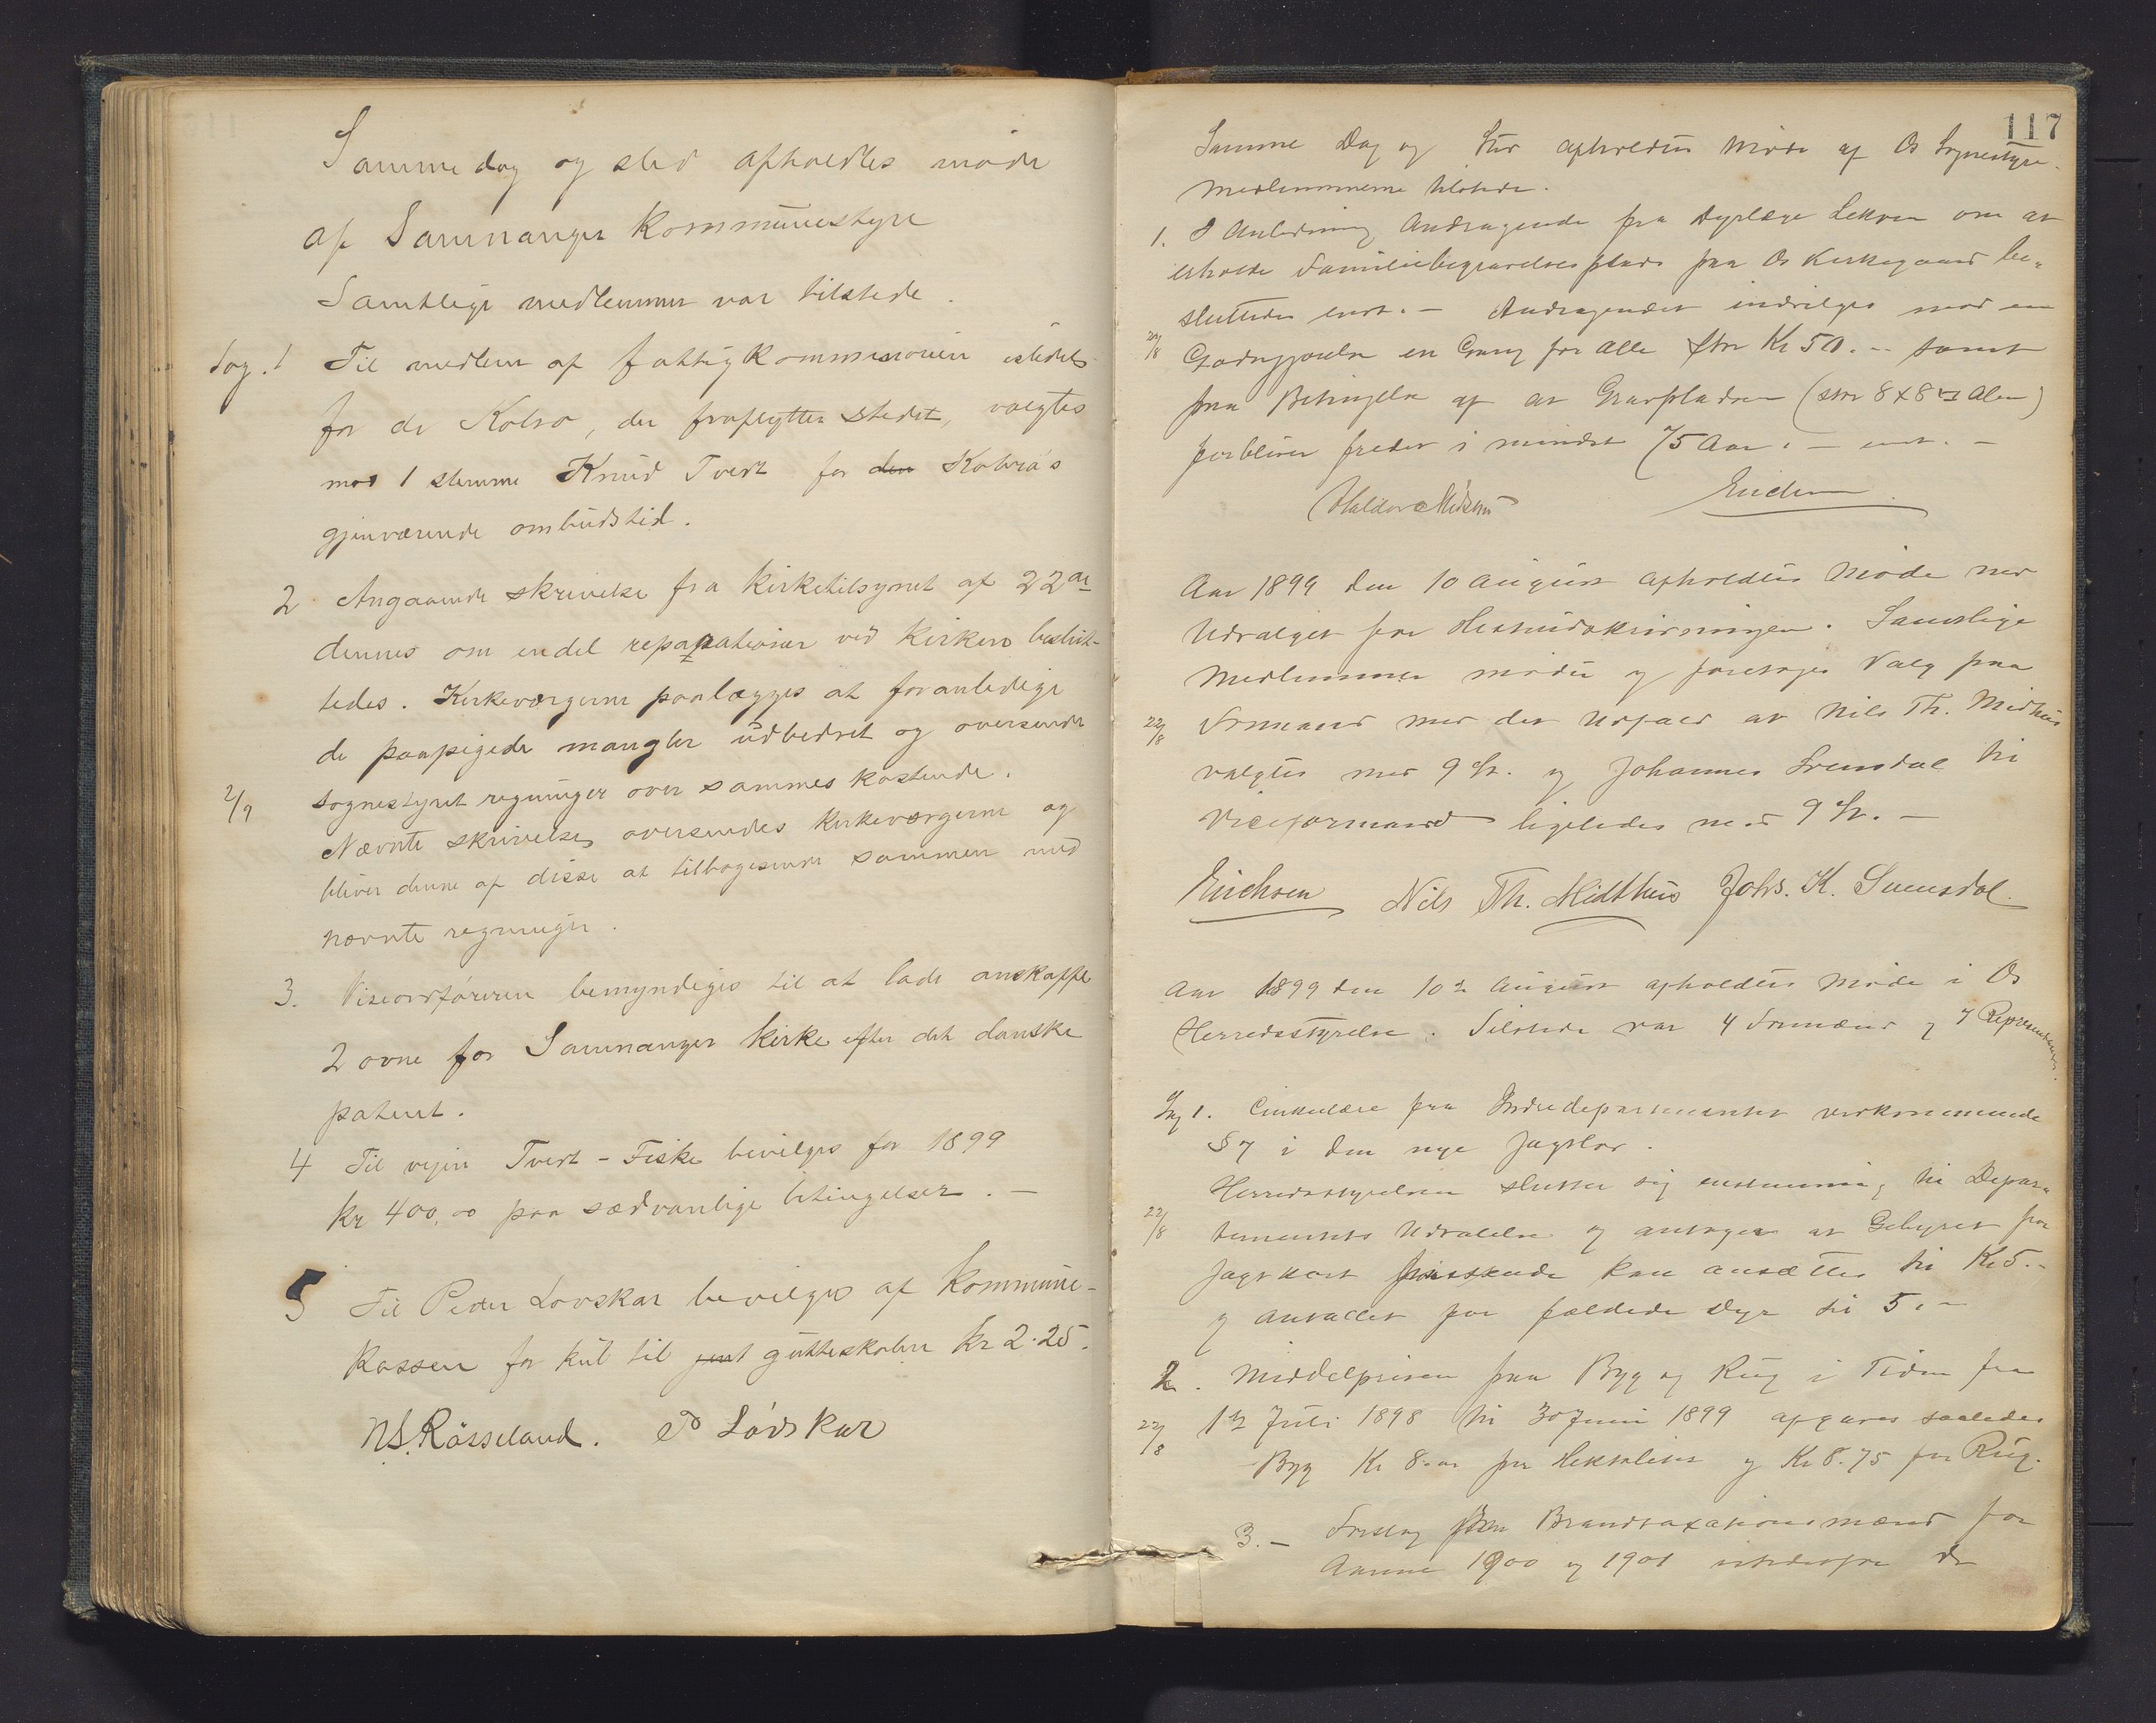 Samme dag og sted afholdtes møde
af Samnanger Kommunestyre
Samtlige medlemmer var tilstede.
Sag. 1 Til medlem af fattigkommissionen istedet
for dr Kolrø, der fraflytter stedet, valgtes
mod 1 stemme Knud Tveit for den Kolrø's
gjenværende ombudstid.
2 Angaaende skrivelse fra kirketilsynet af 22de
dennes om endel reparationer ved kirken beslut-
tedes. Kirkeværgerne paalægges at foranledige
de paapegede mangler udbedret og oversende
2/9 sognestyret regninger over sammes kostende.
Nævnte skrivelse oversendes kirkeværgerne og
bliver denne af disse at tilbagesende sammen med
nævnte regninger.
3. Viseordføreren bemyndiges til at lade anskaffe
2 ovne for Samnanger kirke efter det danske
patent.
4 Til vejen Tveit - Fiske bevilges for 1899
kr 400,00 paa sædvanlige betingelser. —
5 Til Peder Lovskar bevilges af Kommune-
kassen for kul til gutteskolen kr 2.25.
N.S. Rösseland. P Lövskar
117
Samme Dag og Sted afholdtes Møde af Os Sognestyre.
Medlemmerne tilstede.
1. I Anledning Andragende fra Dyrlæge Lekven om at
erholde Familiebegravelsesplads paa Os Kirkegaard be-
sluttedes enst. — Andragendet indvilges mod en
22/8 Godtgjørelse en Gang for alle stor Kr 50.— samt
paa Betingelse af at Gravpladsen (stor 8 x 8 □ Alen)
forbliver fredet i mindst 75 Aar. — enst. —
Haldor Midtsæn Erichsen
Aar 1899 den 10 August afholdtes Møde med
Udvalget for Hesteudskrivningen. Samtlige
Medlemmer mødte og foretoges Valg paa
22/8 Formand med det Udfald at Nils Th. Midthus
valgtes med 9 St. og Johannes Svensdal til
Viceformand ligeledes med 9 St. —
Erichsen Nils Th. Midthus Johs. K. Suensdal.
Aar 1899 den 10de August afholdtes Møde i Os
Herredsstyrelse. Tilstede var 4 Formænd og 7 Repræsentanter.
Sag 1. Cirkulære fra Indredepartementet vedkommende
§ 7 i den nye Jagtlov.
Herredsstyrelsen slutter sig enstemmig til Depar-
22/8 tementets Udtalelse og antager at Gebyret for
Jagtkort kan ansættes til Kr 5.-
og Antallet for fældede Dyr til 5.—
2. Middelprisen paa Byg og Rug i Tiden fra
22/8 1ste Juli 1898 til 30 Juni 1899 opgaves saaledes
Byg Kr 8.00 per Hektoliter og Kr 8.75 for Rug.
3. — Forslag paa Brandtaxationsmænd for
Aarene 1900 og 1901 istedenfor de